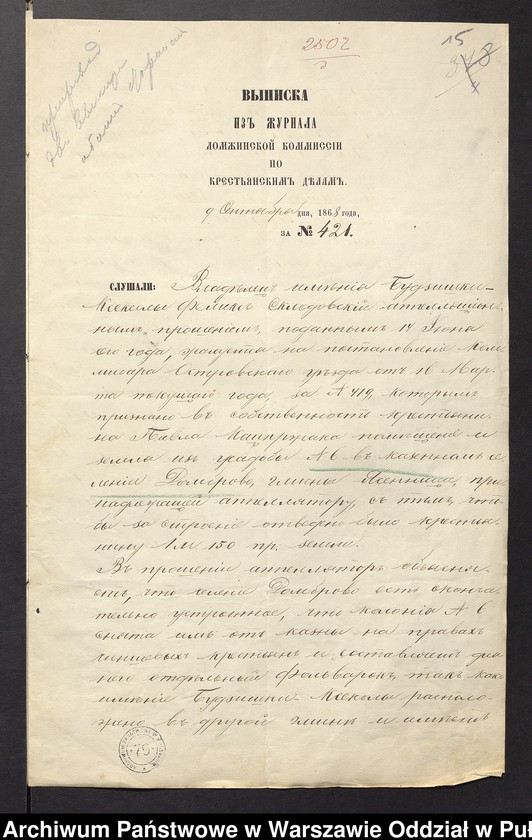 2502
15
348
4
ВЫПИСКА
ИЗЪ ЖУРНАЛА
ЛОМЖИНСКОЙ КОММИССІИ
ПО
КРЕСТЬЯНСКИМЪ ДѢЛАМЪ.
9 Октября дня, 1868 года,
ЗА № 421.
СЛУШАЛИ: Владѣлецъ имѣнія Будзишки-
Феликсъ Склодовскій аппелляціон-
нымъ прошеніемъ, поданнымъ 14 Іюня
сего года, жалуется на постановленіе Ком-
мисара Островскаго уѣзда отъ 16 Мар-
та текущаго года, за № 419, которымъ
признано въ собственность крестьяни-
на Павла помѣщеніе и
земля изъ усадьбы № 6 въ казенномъ се-
леніи Домброво, гмины Ясеница, при-
надлежащей аппеллятору, съ тѣмъ, что-
бы за строеніе отведено было крестья-
нину 1 м. 150 пр. земли.
Въ прошеніи аппелляторъ объясня-
етъ, что селеніе Домброво есть оконча-
тельно устроенное, что колонія № 6
снята имъ отъ казны на правахъ
чиншевыхъ крестьянъ и составляетъ для
него отдѣльный фольварокъ, такъ какъ
имѣніе Будзишки располо-
жено въ другой гминѣ и имѣетъ
79
Archiwum Państwowe w Warszawie Oddział w Pu